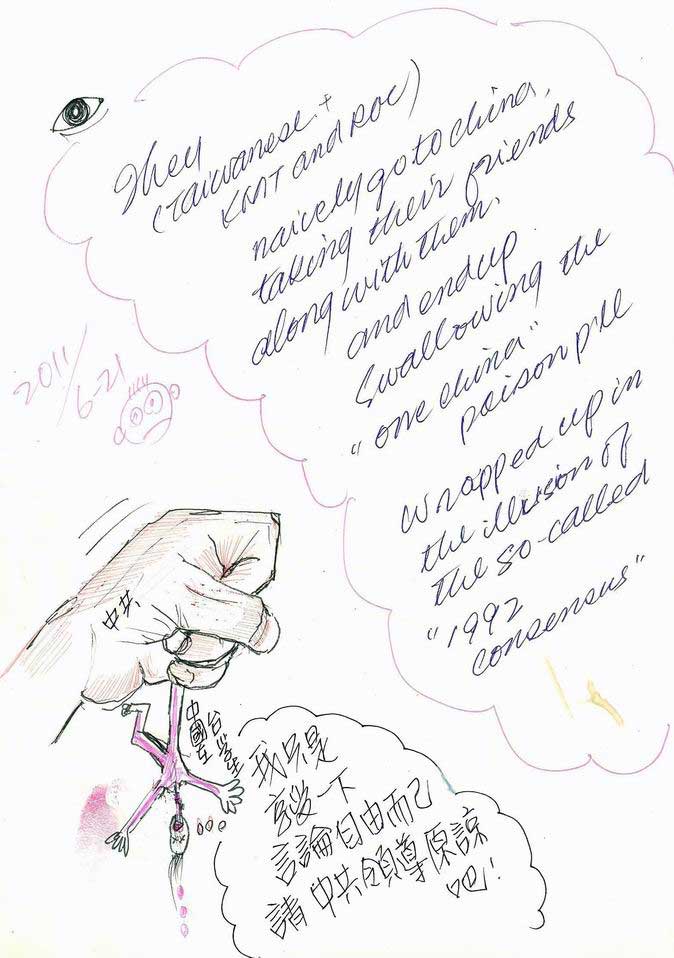 They
(Taiwanese +
KMT and ROC)
naively go to china,
taking their friends
along with them.
and end up
swallowing the
"one china"
poison pill
wrapped up in
the illusion of
the so-called
"1992
consensus"
2011/6-21
中共
中國在
台學生
我只是
享受一下
言論自由而己
請中共領導原諒
吧!